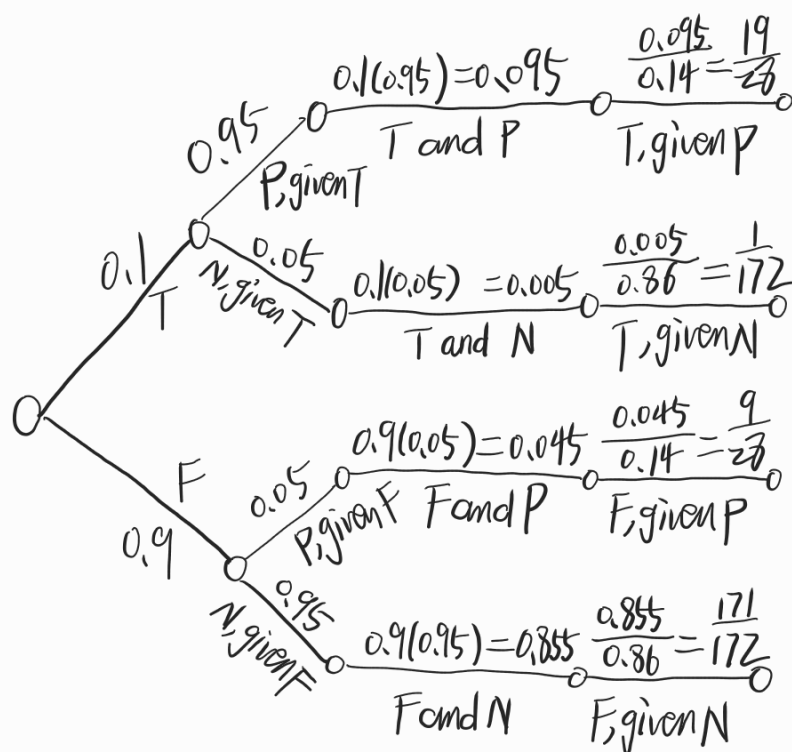 0.1
T
0.95
P,givenT
0.1(0.95)=0.095
T and P
0.095/0.14=19/28
T,givenP
0.05
N,givenT
0.1(0.05) =0.005
T and N
0.005/0.86=1/172
T,givenN
F
0.9
0.05
P,givenF
0.9(0.05)=0.045
F and P
0.045/0.14=9/28
F,givenP
0.95
N,givenF
0.9(0.95)=0.855
F and N
0.855/0.86=171/172
F,givenN